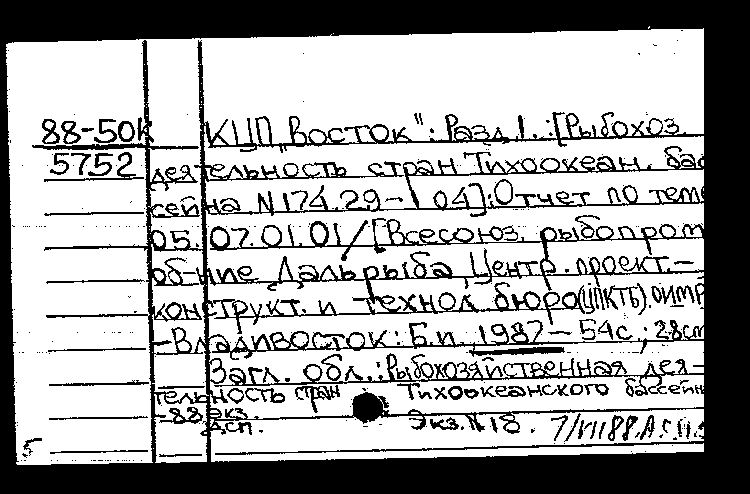 88-50К КЦП „Восток": Разд 1. :[Рыбохоз.
5752 деятельность стран Тихоокеан. бас
сейна N174.29-1 04]:Отчет по теме
05.07.01.01/[Всесоюз. рыбопром
об-ние Дальрыба, Центр. проект.-
конструкт. и технол бюро(ЦПКТБ).
-Владивосток: Б.и., 1987- 54с.; 28см
Загл. обл.:Рыбохозяйственная дея-
тельность стран Тихоокеанского бассейн
-88 экз.
Дсп. Экз.N18.
5